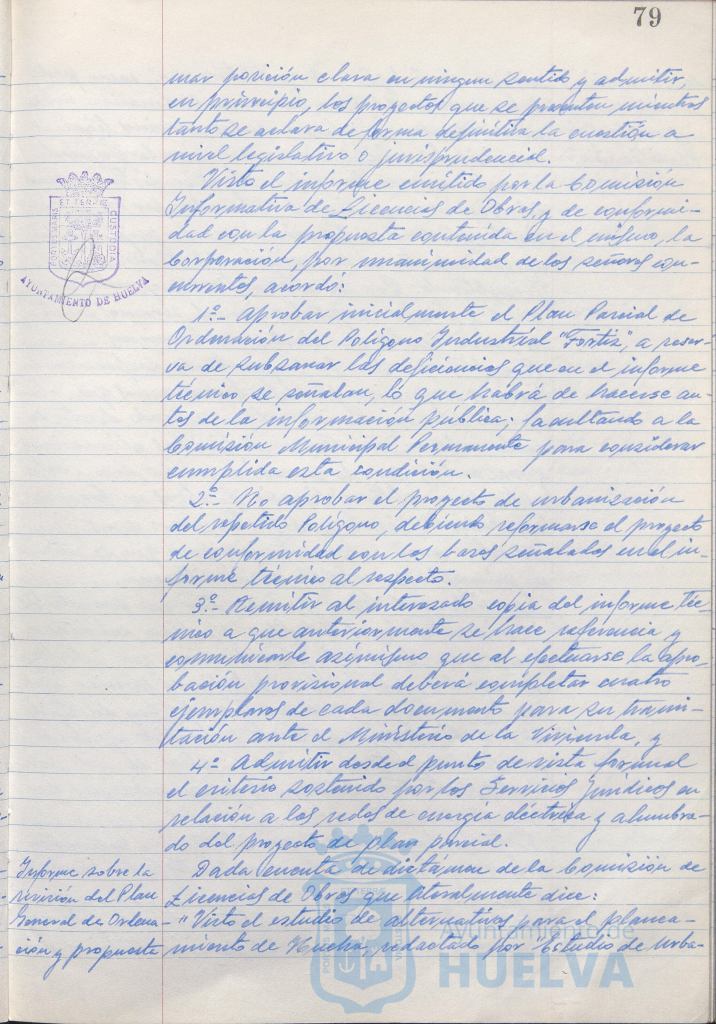 79
mar posición clara en ningun sentido y admitir,
en principio, los proyectos que se presenten mientras
tanto se aclara de forma definitiva la cuestión a
nivel legislativo o jurisprudencial.
Visto el informe emitido por la Comisión
Informativa de Licencias de Obras, y de conformi-
dad con la propuesta contenida en el mismo, la
Corporación, por unanimidad de los señores con-
currentes, acordó:
1º.- Aprobar inicialmente el Plan Parcial de
Ordenación del Polígono Industrial "Fortiz", a reser-
va de subsanar las deficiencias que en el informe
técnico se señalan, lo que habrá de hacerse an-
tes de la información pública; facultando a la
Comisión Municipal Permanente para considerar
cumplida esta condición.
2º.- No aprobar el proyecto de urbanización
del repetido Polígono, debiendo reformarse el proyecto
de conformidad con las bases señaladas en el in-
forme técnico al respecto.
3º.- Remitir al interesado copia del informe téc-
nico a que anteriormente se hace referencia y
comunicarle asimismo que al efectuarse la apro-
bación provisional deberá completar cuatro
ejemplares de cada documento para su trami-
tación ante el Ministerio de la Vivienda, y
4º- Admitir desde el punto de vista formal
el criterio sostenido por los Servicios Jurídicos en
relación a las redes de energía eléctrica y alumbra-
do del proyecto de plan parcial.
Dada cuenta de dictámen de la Comisión de
Licencias de Obras que literalmente dice:
"Visto el estudio de alternativas para el planea-
miento de Huelva, redactado por "Estudio de Urba-
Informe sobre la
revisión del Plan
General de Ordena-
ción y propuesta
PORTUS MARIS
ET TERRAE
CUSTODIA
AYUNTAMIENTO DE HUELVA
Ayuntamiento de
HUELVA